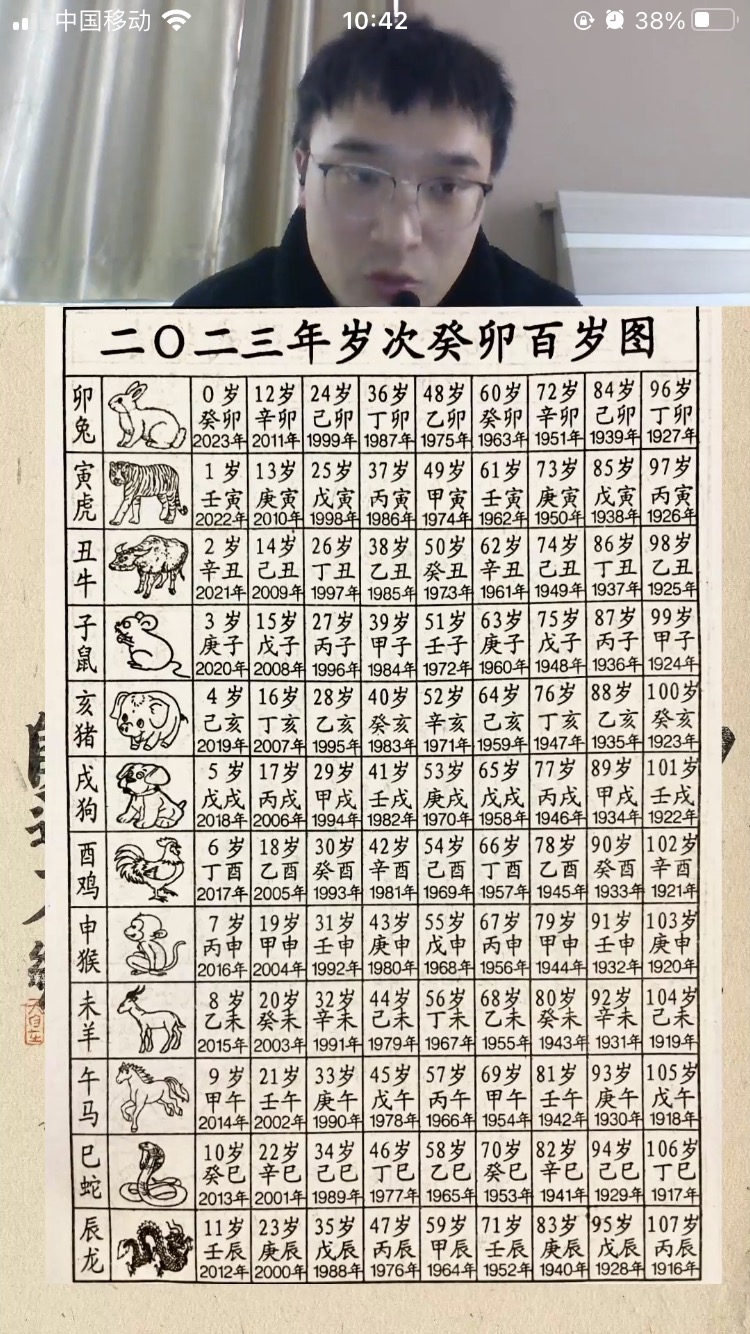 中国移动 10:42 38%
二〇二三年岁次癸卯百岁图
卯 0岁 12岁 24岁 36岁 48岁 60岁 72岁 84岁 96岁
兔 癸卯 辛卯 己卯 丁卯 乙卯 癸卯 辛卯 己卯 丁卯
2023年 2011年 1999年 1987年 1975年 1963年 1951年 1939年 1927年
寅 1岁 13岁 25岁 37岁 49岁 61岁 73岁 85岁 97岁
虎 壬寅 庚寅 戊寅 丙寅 甲寅 壬寅 庚寅 戊寅 丙寅
2022年 2010年 1998年 1986年 1974年 1962年 1950年 1938年 1926年
丑 2岁 14岁 26岁 38岁 50岁 62岁 74岁 86岁 98岁
牛 辛丑 己丑 丁丑 乙丑 癸丑 辛丑 己丑 丁丑 乙丑
2021年 2009年 1997年 1985年 1973年 1961年 1949年 1937年 1925年
子 3岁 15岁 27岁 39岁 51岁 63岁 75岁 87岁 99岁
鼠 庚子 戊子 丙子 甲子 壬子 庚子 戊子 丙子 甲子
2020年 2008年 1996年 1984年 1972年 1960年 1948年 1936年 1924年
亥 4岁 16岁 28岁 40岁 52岁 64岁 76岁 88岁 100岁
猪 己亥 丁亥 乙亥 癸亥 辛亥 己亥 丁亥 乙亥 癸亥
2019年 2007年 1995年 1983年 1971年 1959年 1947年 1935年 1923年
戌 5岁 17岁 29岁 41岁 53岁 65岁 77岁 89岁 101岁
狗 戊戌 丙戌 甲戌 壬戌 庚戌 戊戌 丙戌 甲戌 壬戌
2018年 2006年 1994年 1982年 1970年 1958年 1946年 1934年 1922年
酉 6岁 18岁 30岁 42岁 54岁 66岁 78岁 90岁 102岁
鸡 丁酉 乙酉 癸酉 辛酉 己酉 丁酉 乙酉 癸酉 辛酉
2017年 2005年 1993年 1981年 1969年 1957年 1945年 1933年 1921年
申 7岁 19岁 31岁 43岁 55岁 67岁 79岁 91岁 103岁
猴 丙申 甲申 壬申 庚申 戊申 丙申 甲申 壬申 庚申
2016年 2004年 1992年 1980年 1968年 1956年 1944年 1932年 1920年
未 8岁 20岁 32岁 44岁 56岁 68岁 80岁 92岁 104岁
羊 乙未 癸未 辛未 己未 丁未 乙未 癸未 辛未 己未
2015年 2003年 1991年 1979年 1967年 1955年 1943年 1931年 1919年
午 9岁 21岁 33岁 45岁 57岁 69岁 81岁 93岁 105岁
马 甲午 壬午 庚午 戊午 丙午 甲午 壬午 庚午 戊午
2014年 2002年 1990年 1978年 1966年 1954年 1942年 1930年 1918年
巳 10岁 22岁 34岁 46岁 58岁 70岁 82岁 94岁 106岁
蛇 癸巳 辛巳 己巳 丁巳 乙巳 癸巳 辛巳 己巳 丁巳
2013年 2001年 1989年 1977年 1965年 1953年 1941年 1929年 1917年
辰 11岁 23岁 35岁 47岁 59岁 71岁 83岁 95岁 107岁
龙 壬辰 庚辰 戊辰 丙辰 甲辰 壬辰 庚辰 戊辰 丙辰
2012年 2000年 1988年 1976年 1964年 1952年 1940年 1928年 1916年